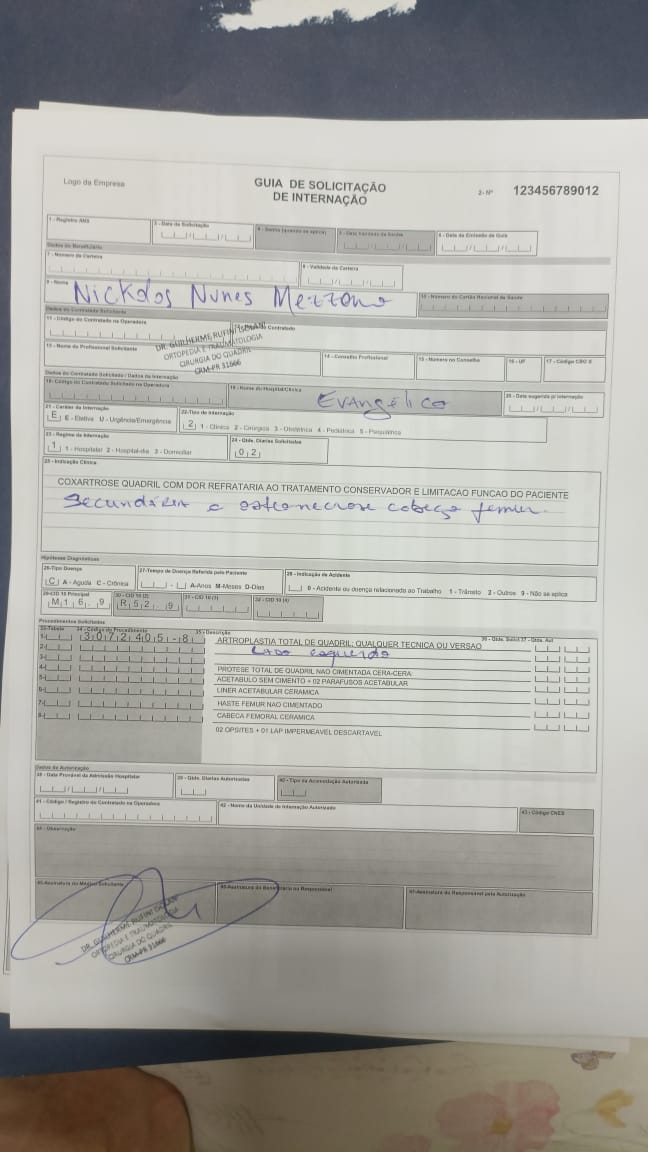 Logo da Empresa
GUIA DE SOLICITAÇÃO
DE INTERNAÇÃO
2- Nº 123456789012
1 - Registro ANS
3 - Data da Solicitação
4 - Senha
6 - Data da Emissão da Guia
Dados do Beneficiário
7 - Número da Carteira
8 - Validade da Carteira
9 - Nome
Nickolas Nunes
10 - Número do Cartão Nacional de Saúde
Dados do Contratado Solicitante
11 - Código do Contratado na Operadora
Contratado
DR. GUILHERME RUFINI
ORTOPEDIA E TRAUMATOLOGIA
CIRURGIA DO QUADRIL
CRM-PR 31666
13 - Nome do Profissional Solicitante
14 - Conselho Profissional
15 - Número no Conselho
16 - UF
17 - Código CBO S
Dados do Contratado Solicitado / Dados da Internação
18 - Código do Contratado Solicitado na Operadora
19 - Nome do Hospital/Clínica
Evangélico
20 - Data sugerida p/ internação
21 - Caráter da Internação
E E - Eletiva U - Urgência/Emergência
22-Tipo de Internação
2 1 - Clínica 2 - Cirúrgica 3 - Obstétrica 4 - Pediátrica 5 - Psiquiátrica
23 - Regime de Internação
1 1 - Hospitalar 2 - Hospital-dia 3 - Domiciliar
24 - Qtde. Diárias Solicitadas
02
25 - Indicação Clínica
COXARTROSE QUADRIL COM DOR REFRATARIA AO TRATAMENTO CONSERVADOR E LIMITACAO FUNCAO DO PACIENTE
Secundária a cabeça femur.
Hipóteses Diagnósticas
26-Tipo Doença
C A - Aguda C - Crônica
27-Tempo de Doença Referida pelo Paciente
A-Anos M-Meses D-Dias
28 - Indicação de Acidente
0 - Acidente ou doença relacionada ao Trabalho 1 - Trânsito 2 - Outros 9 - Não se aplica
29-CID 10 Principal
M16. 9
30 - CID 10 (2)
R52. 9
31 - CID 10 (3)
32 - CID 10 (4)
Procedimentos Solicitados
33-Tabela
34 - Código do Procedimento
35 - Descrição
36 - Qtde. Solict
37 - Qtde. Aut
1- 3 0 7 2 4 0 5 - 8 ARTROPLASTIA TOTAL DE QUADRIL; QUALQUER TECNICA OU VERSAO
2- Lado esquerdo
3-
4- PROTESE TOTAL DE QUADRIL NAO CIMENTADA CERA-CERA:
5- ACETABULO SEM CIMENTO + 02 PARAFUSOS ACETABULAR
6- LINER ACETABULAR CERAMICA
7- HASTE FEMUR NAO CIMENTADO
8- CABECA FEMORAL CERAMICA
02 OPSITES + 01 LAP IMPERMEAVEL DESCARTAVEL
Dados da Autorização
38 - Data Provável da Admissão Hospitalar
39 - Qtde. Diárias Autorizadas
40 - Tipo da Acomodação Autorizada
41 - Código / Registro do Contratado na Operadora
42 - Nome da Unidade de Internação Autorizado
43 - Código CNES
44 - Observação
45-Assinatura do Médico Solicitante
46-Assinatura do Beneficiário ou Responsável
47-Assinatura do Responsável pela Autorização
DR. GUILHERME RUFINI
ORTOPEDIA E TRAUMATOLOGIA
CIRURGIA DO QUADRIL
CRM-PR 31666